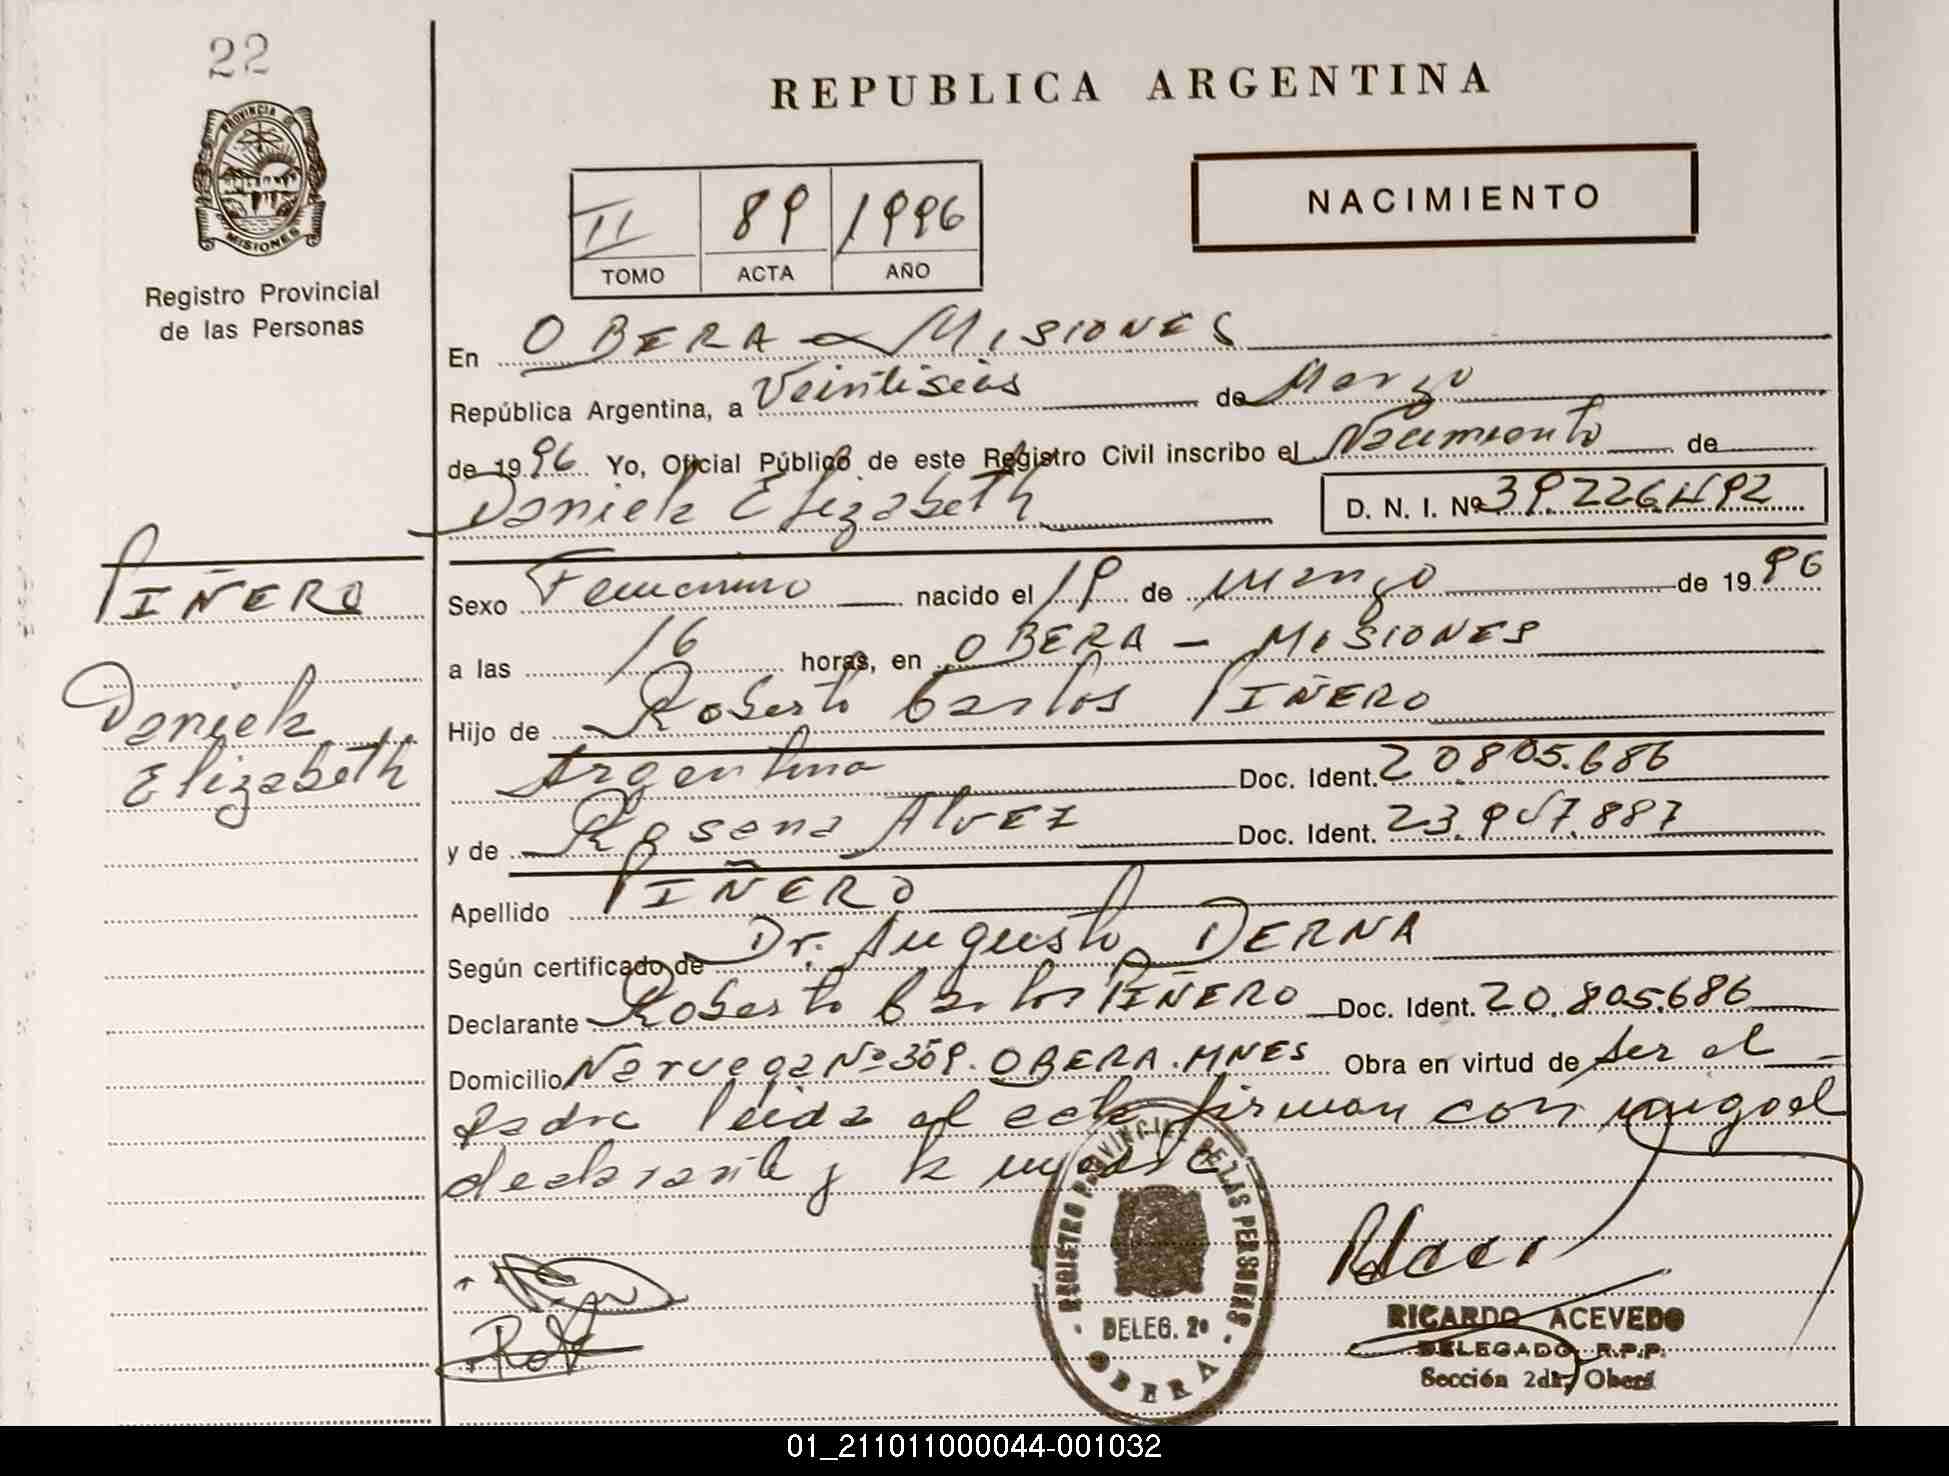 22
PROVINCIA D
MISIONES
Registro Provincial
de las Personas
REPUBLICA ARGENTINA
NACIMIENTO
II 89 1996
TOMO ACTA AÑO
En OBERA - MISIONES
República Argentina, a Veintiseis de Marzo
de 1996 Yo, Oficial Público de este Registro Civil inscribo el Nacimiento de
Daniela Elizabeth D. N. I. Nº 39.226.492
PIÑERO
Daniela
Elizabeth
Sexo Femenino nacido el 19 de Marzo de 1996
a las 16 horas, en OBERA - MISIONES
Hijo de Roberto Carlos PIÑERO
Argentina Doc. Ident. 20.805.686
y de Rosana Alvez Doc. Ident. 23.957.887
Apellido PIÑERO
Según certificado de Dr. Augusto DERNA
Declarante Roberto Carlos PIÑERO Doc. Ident. 20.805.686
Domicilio Noruega Nº 359. OBERA. MNES Obra en virtud de ser el
padre leida el acta firman conmigo el
declarante y la madre
REGISTRO PROVINCIAL DE LAS PERSONAS
DELEG. 2º
OBERA
RICARDO ACEVEDO
DELEGADO R.P.P.
Sección 2da, Oberá
01_211011000044-001032